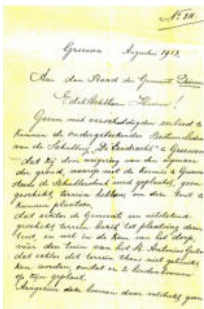 No. 311.
Griessen Augustus 1913.
Aan den Raad der Gemeente
Edelachtbare Heeren!
Geven met verschuldigden eerbied te
kennen de ondergeteekenden Bestuursleden
van de Schutterij "De Eendracht" te
dat zij den eigenaar
der grond, waarop met de kermis
de Schutterstent werd geplaatst, geen
geschikt terrein hebben, om den tent te
kunnen plaatsen,
dat echter de Gemeente een uitstekend
geschikt terrein bezit tot plaatsing dezer
tent, en wel in de kom van het dorp
vóór den tuin van het St. Antonius
dat echter dit terrein thans niet gebruikt
kan worden, omdat er 2 lindenboomen
op zijn geplant.
Aangezien deze boomen daar volstrekt geen